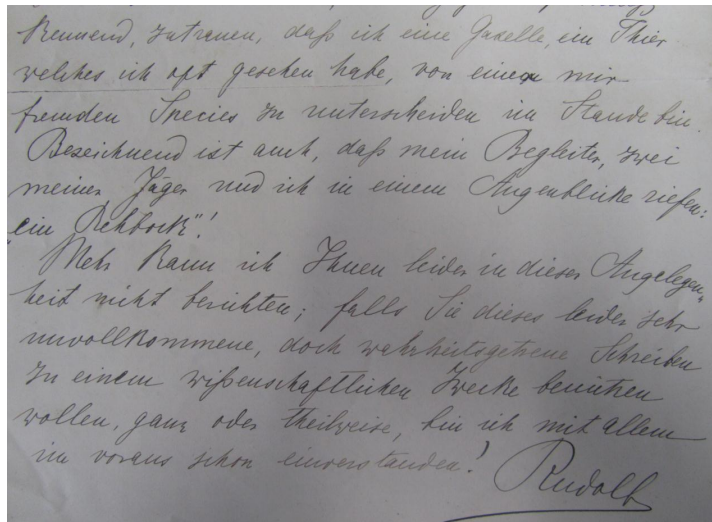 kennend, zutrauen, daß ich eine Gazelle, ein Thier
welches ich oft gesehen habe, von einem mir
fremden Species zu unterscheiden im Stande bin.
Bezeichnend ist auch, daß mein Begleiter, zwei
meiner Jäger und ich in einem Augenblicke riefen:
„ein Rehbock"!
Mehr kann ich Ihnen leider in dieser Angelegen„
heit nicht berichten; falls Sie dieses leider sehr
unvollkommene, doch wahrheitsgetreue Schreiben
zu einem wißenschaftlichen Zwecke benützen
wollen, ganz oder theilweise, bin ich mit allem
im voraus schon einverstanden!
Rudolf